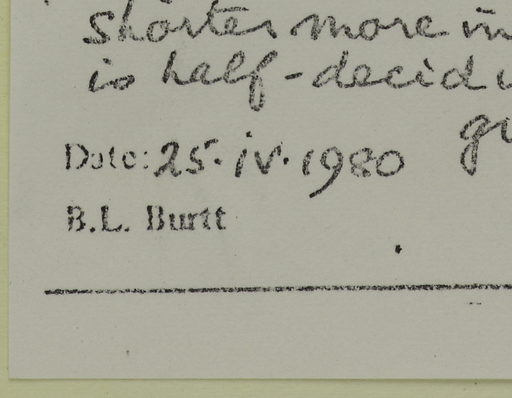 shorter more in
is half-decid
gu
Date: 25. iv. 1980
B.L. Burtt